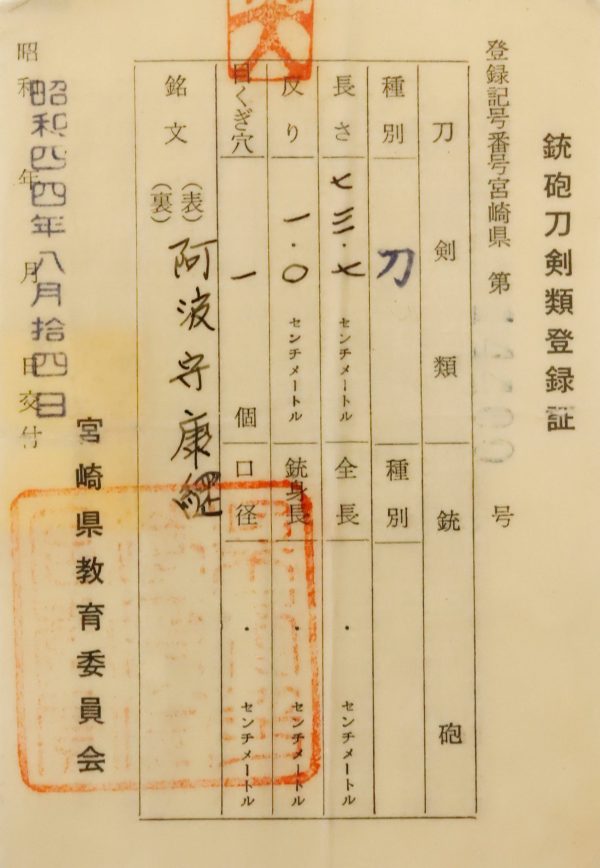 銃砲刀剣類登録証
登録記号番号宮崎県 第 号
刀剣類 銃砲
種別 刀 種別
長さ 七三.七 センチメートル 全長 . センチメートル
反り 一.〇 センチメートル 銃身長 . センチメートル
目くぎ穴 一 個 口径 . センチメートル
銘文 (表) 阿波守康
(裏)
宮崎県教育委員会
昭和 年 月 日交付
昭和四四年八月拾四日